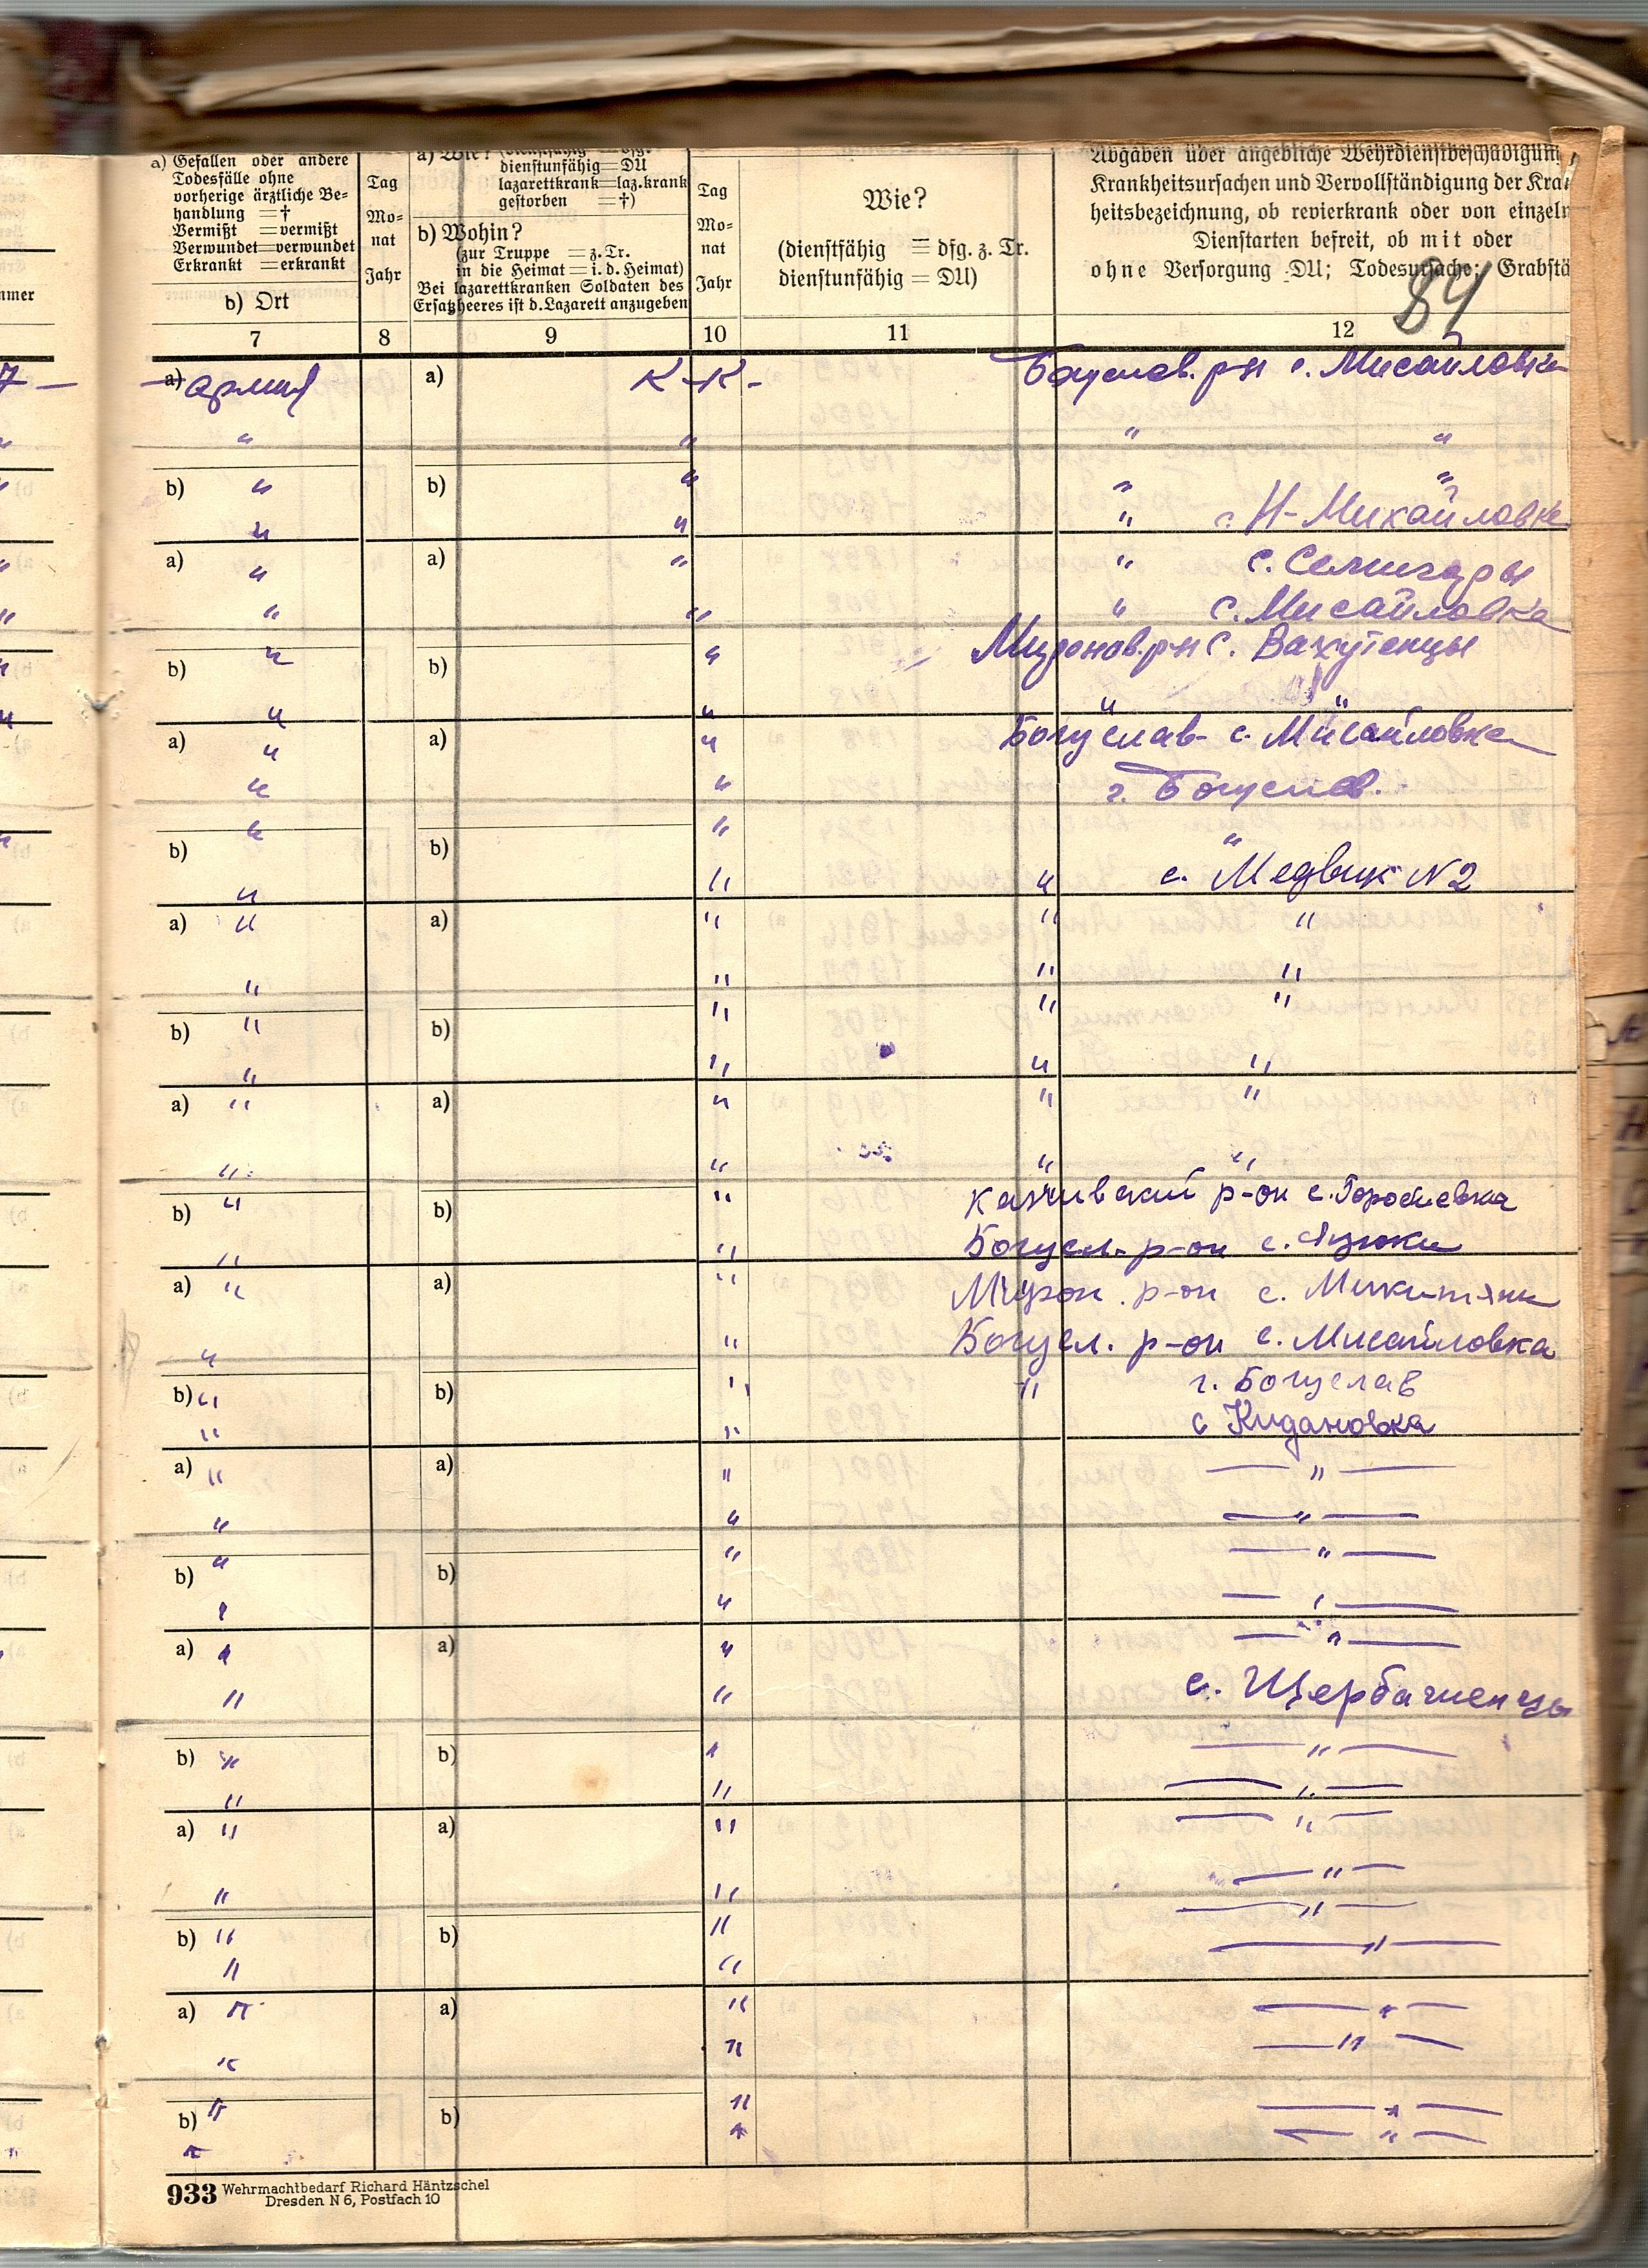 a) Gefallen oder andere
Todesfälle ohne
vorherige ärztliche Be-
handlung = †
Vermißt = vermißt
Verwundet = verwundet
Erkrankt = erkrankt
b) Ort
Tag
Mo-
nat
Jahr
a) Wie?
dienstunfähig = DU
lazarettkrank = laz.krank
gestorben = †)
b) Wohin?
(zur Truppe = z. Tr.
in die Heimat = i. d. Heimat)
Bei lazarettkranken Soldaten des
Ersatzheeres ist d. Lazarett anzugeben
Tag
Mo-
nat
Jahr
Wie?
(dienstfähig = dfg. z. Tr.
dienstunfähig = DU)
Angaben über angebliche Wehrdienstbeschädigung,
Krankheitsursachen und Vervollständigung der Kran
heitsbezeichnung, ob revierkrank oder von einzeln
Dienstarten befreit, ob mit oder
ohne Versorgung DU; Todesursache; Grabstä
84
7 8 9 10 11 12
a) армия a) К-К- Богуслав. р-н с. Мисайловка
" " " "
b) " b) " " "
" " " с. Н-Михайловка
a) " a) " " с. Семигоры
" " " с. Мисайловка
b) " b) " Миронов. рн с. Вахутенцы
" " " "
a) " a) " Богуслав- с. Мисайловка
" " г. Богуслав.
b) " b) " "
" " " с. Медвин N2
a) " a) " " "
" " " "
b) " b) " " "
" " " "
a) " a) " " "
" " " "
b) " b) " р-он с.
" " Богусл. р-он с.
a) " a) " Мирон. р-он с. Микитяни
" " Богусл. р-он с. Мисайловка
b) " b) " " г. Богуслав
" " с Кидановка
a) " a) " — " —
" " — " —
b) " b) " — " —
" " — " —
a) " a) " — " —
" " с. Щербашенцы
b) " b) " — " —
" " — " —
a) " a) " — " —
" " — " —
b) " b) " — " —
" " — " —
a) " a) " — " —
" " — " —
b) " b) " — " —
" " — " —
933 Wehrmachtbedarf Richard Häntzschel
Dresden N 6, Postfach 10